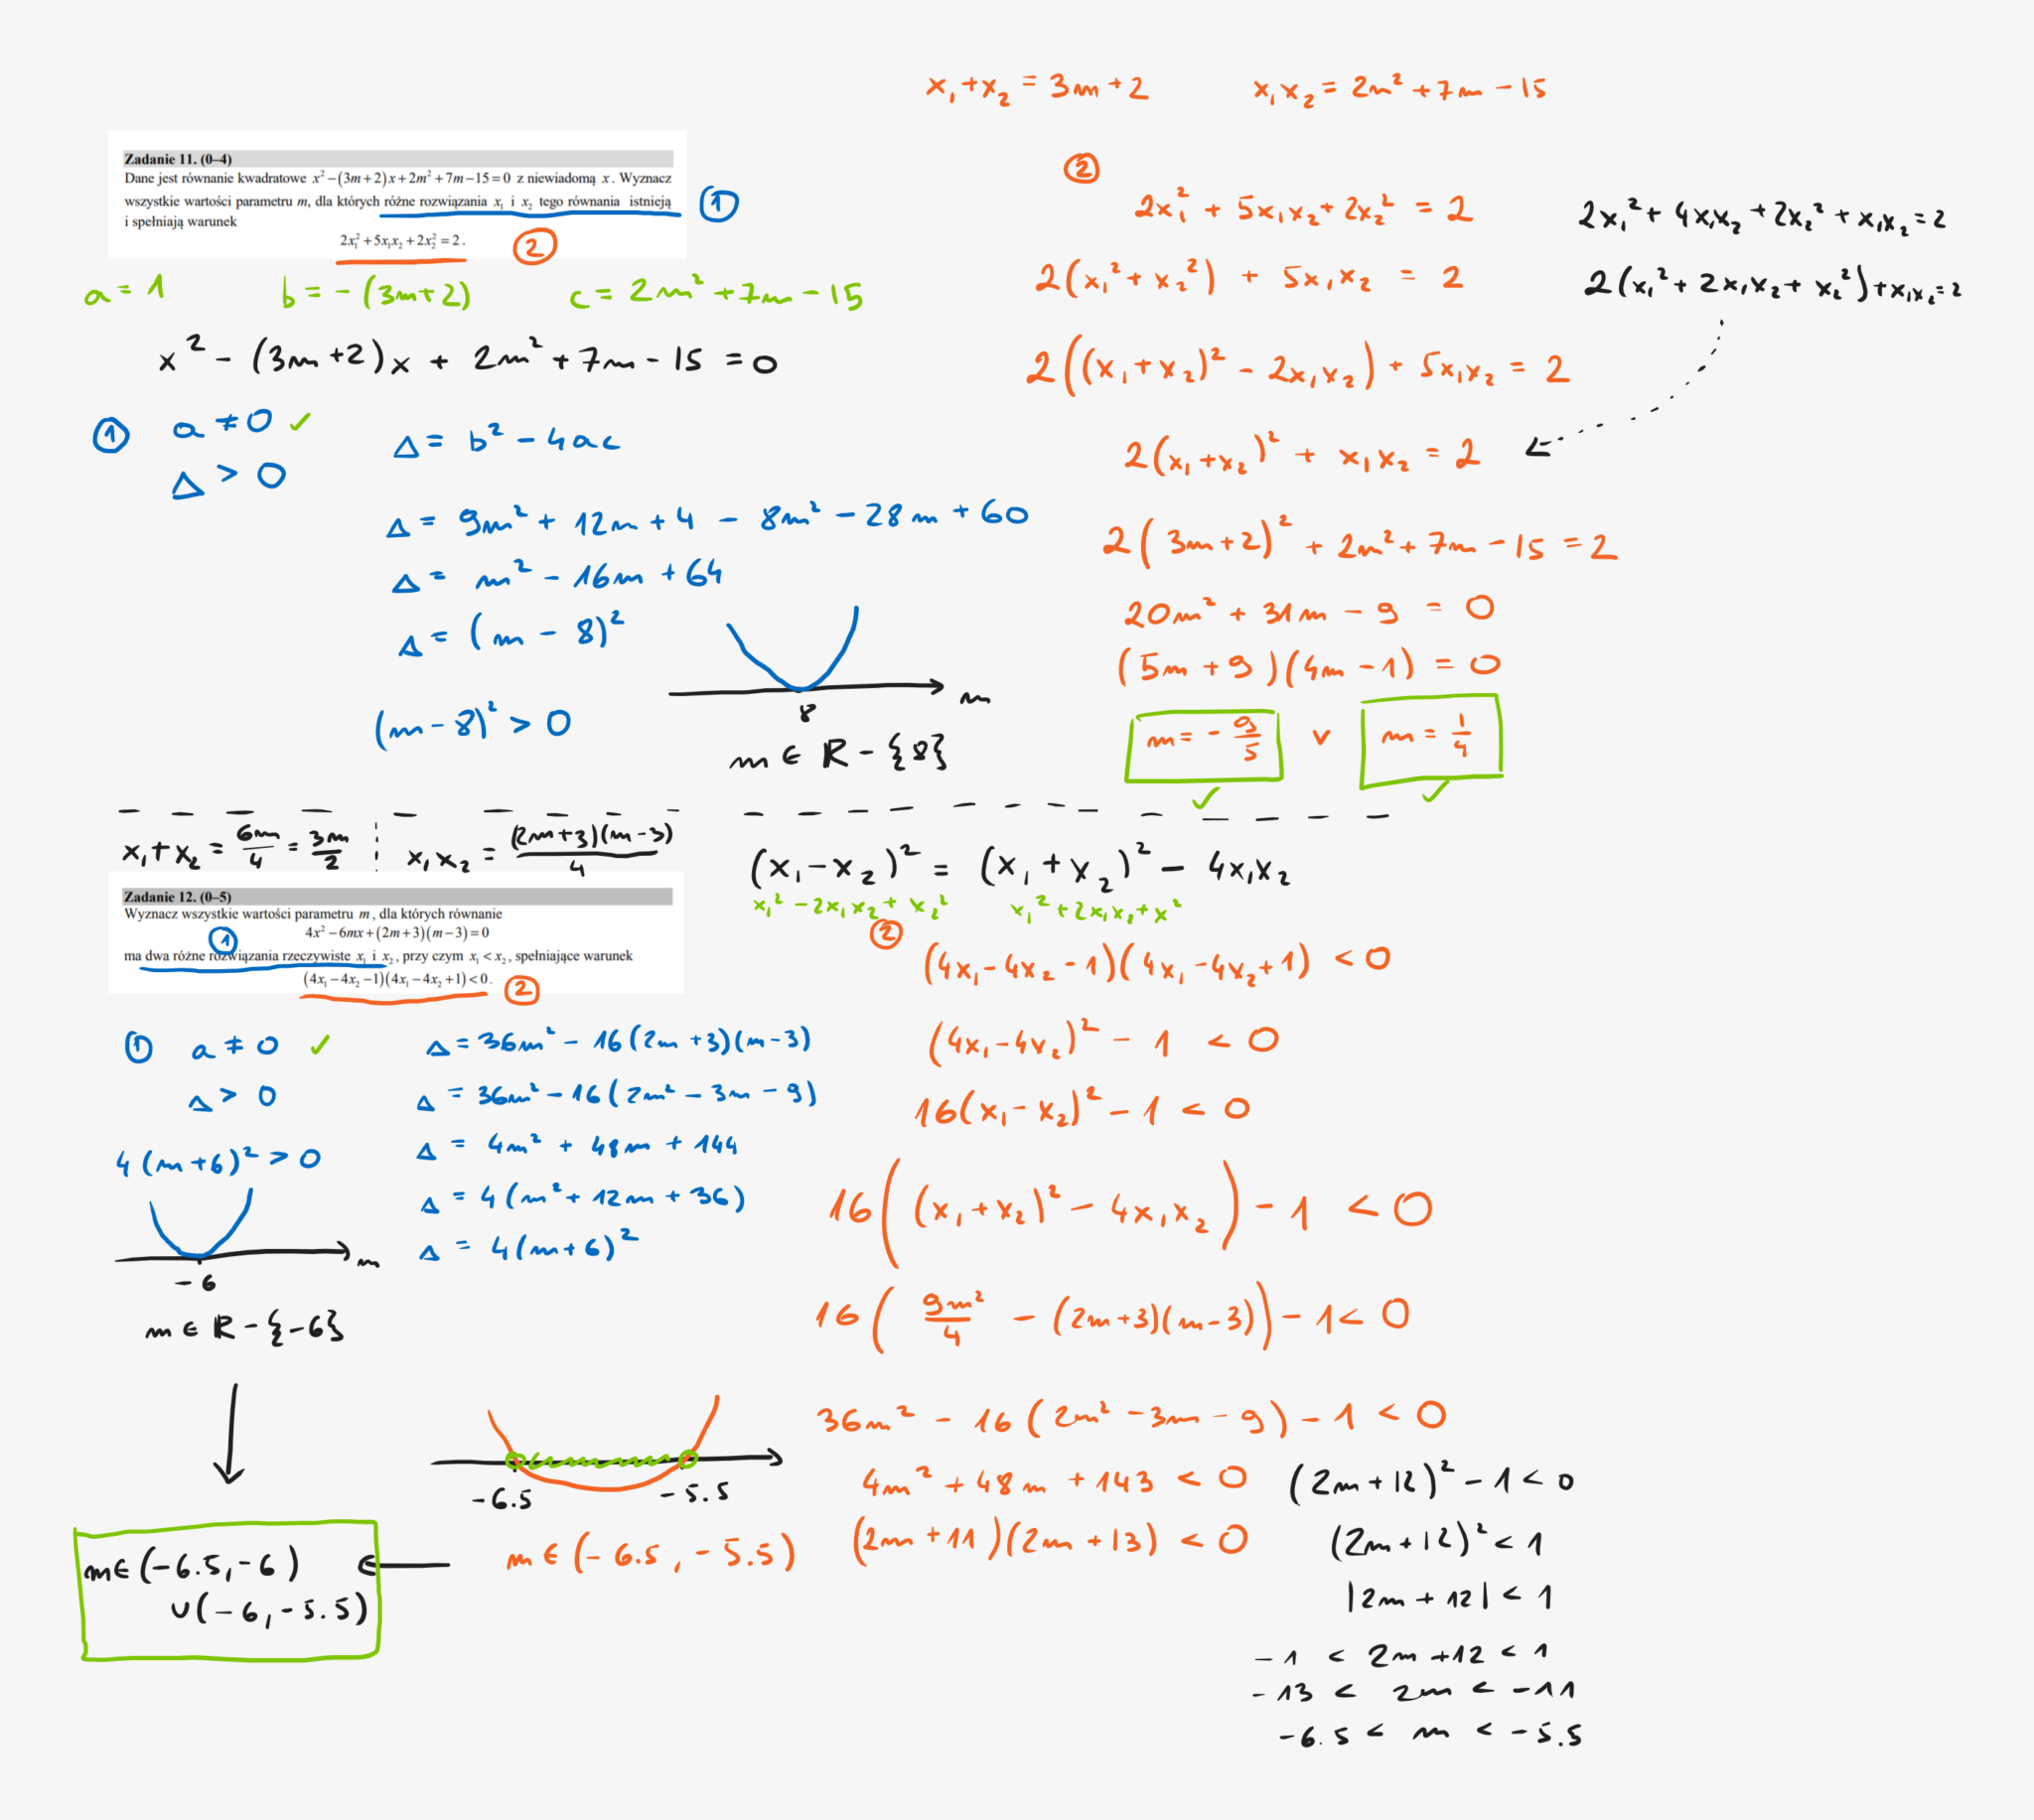 x₁+x₂ = 3m+2   x₁x₂ = 2m²+7m−15
Zadanie 11. (0–4)
Dane jest równanie kwadratowe x²−(3m+2)x+2m²+7m−15=0 z niewiadomą x. Wyznacz
wszystkie wartości parametru m, dla których różne rozwiązania x₁ i x₂ tego równania istnieją ①
i spełniają warunek
2x₁²+5x₁x₂+2x₂²=2. ②
a=1   b=−(3m+2)   c=2m²+7m−15
x²−(3m+2)x+2m²+7m−15=0
① a≠0 ✓
Δ>0
Δ=b²−4ac
Δ=9m²+12m+4−8m²−28m+60
Δ=m²−16m+64
Δ=(m−8)²
(m−8)²>0
8
m
m∈R−{8}
②
2x₁²+5x₁x₂+2x₂²=2
2(x₁²+x₂²)+5x₁x₂=2
2((x₁+x₂)²−2x₁x₂)+5x₁x₂=2
2(x₁+x₂)²+x₁x₂=2
2(3m+2)²+2m²+7m−15=2
20m²+31m−9=0
(5m+9)(4m−1)=0
m=−9/5 ∨ m=1/4
✓ ✓
2x₁²+4x₁x₂+2x₂²+x₁x₂=2
2(x₁²+2x₁x₂+x₂²)+x₁x₂=2
x₁+x₂=6m/4=3m/2   x₁x₂=(2m+3)(m−3)/4
Zadanie 12. (0–5)
Wyznacz wszystkie wartości parametru m, dla których równanie
4x²−6mx+(2m+3)(m−3)=0
①
ma dwa różne rozwiązania rzeczywiste x₁ i x₂, przy czym x₁<x₂, spełniające warunek
(4x₁−4x₂−1)(4x₁−4x₂+1)<0. ②
① a≠0 ✓
Δ>0
4(m+6)²>0
−6
m
m∈R−{−6}
Δ=36m²−16(2m+3)(m−3)
Δ=36m²−16(2m²−3m−9)
Δ=4m²+48m+144
Δ=4(m²+12m+36)
Δ=4(m+6)²
(x₁−x₂)²=(x₁+x₂)²−4x₁x₂
x₁²−2x₁x₂+x₂²   x₁²+2x₁x₂+x²
②
(4x₁−4x₂−1)(4x₁−4x₂+1)<0
(4x₁−4x₂)²−1<0
16(x₁−x₂)²−1<0
16((x₁+x₂)²−4x₁x₂)−1<0
16(9m²/4−(2m+3)(m−3))−1<0
36m²−16(2m²−3m−9)−1<0
4m²+48m+143<0
(2m+11)(2m+13)<0
(2m+12)²−1<0
(2m+12)²<1
|2m+12|<1
−1<2m+12<1
−13<2m<−11
−6.5<m<−5.5
−6.5   −5.5
m∈(−6.5,−5.5)
m∈(−6.5,−6)
∪(−6,−5.5)